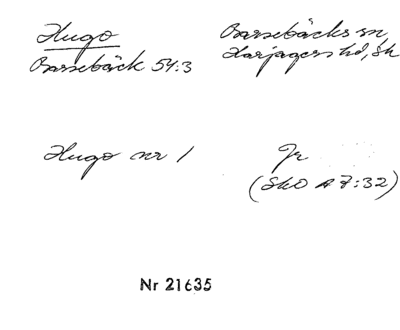 Hugo
Barsebäck 54:3
Barsebäcks sn,
Harjagers hd, Sk
Hugo nr 1
Jr
(SkO A7:32)
Nr 21635